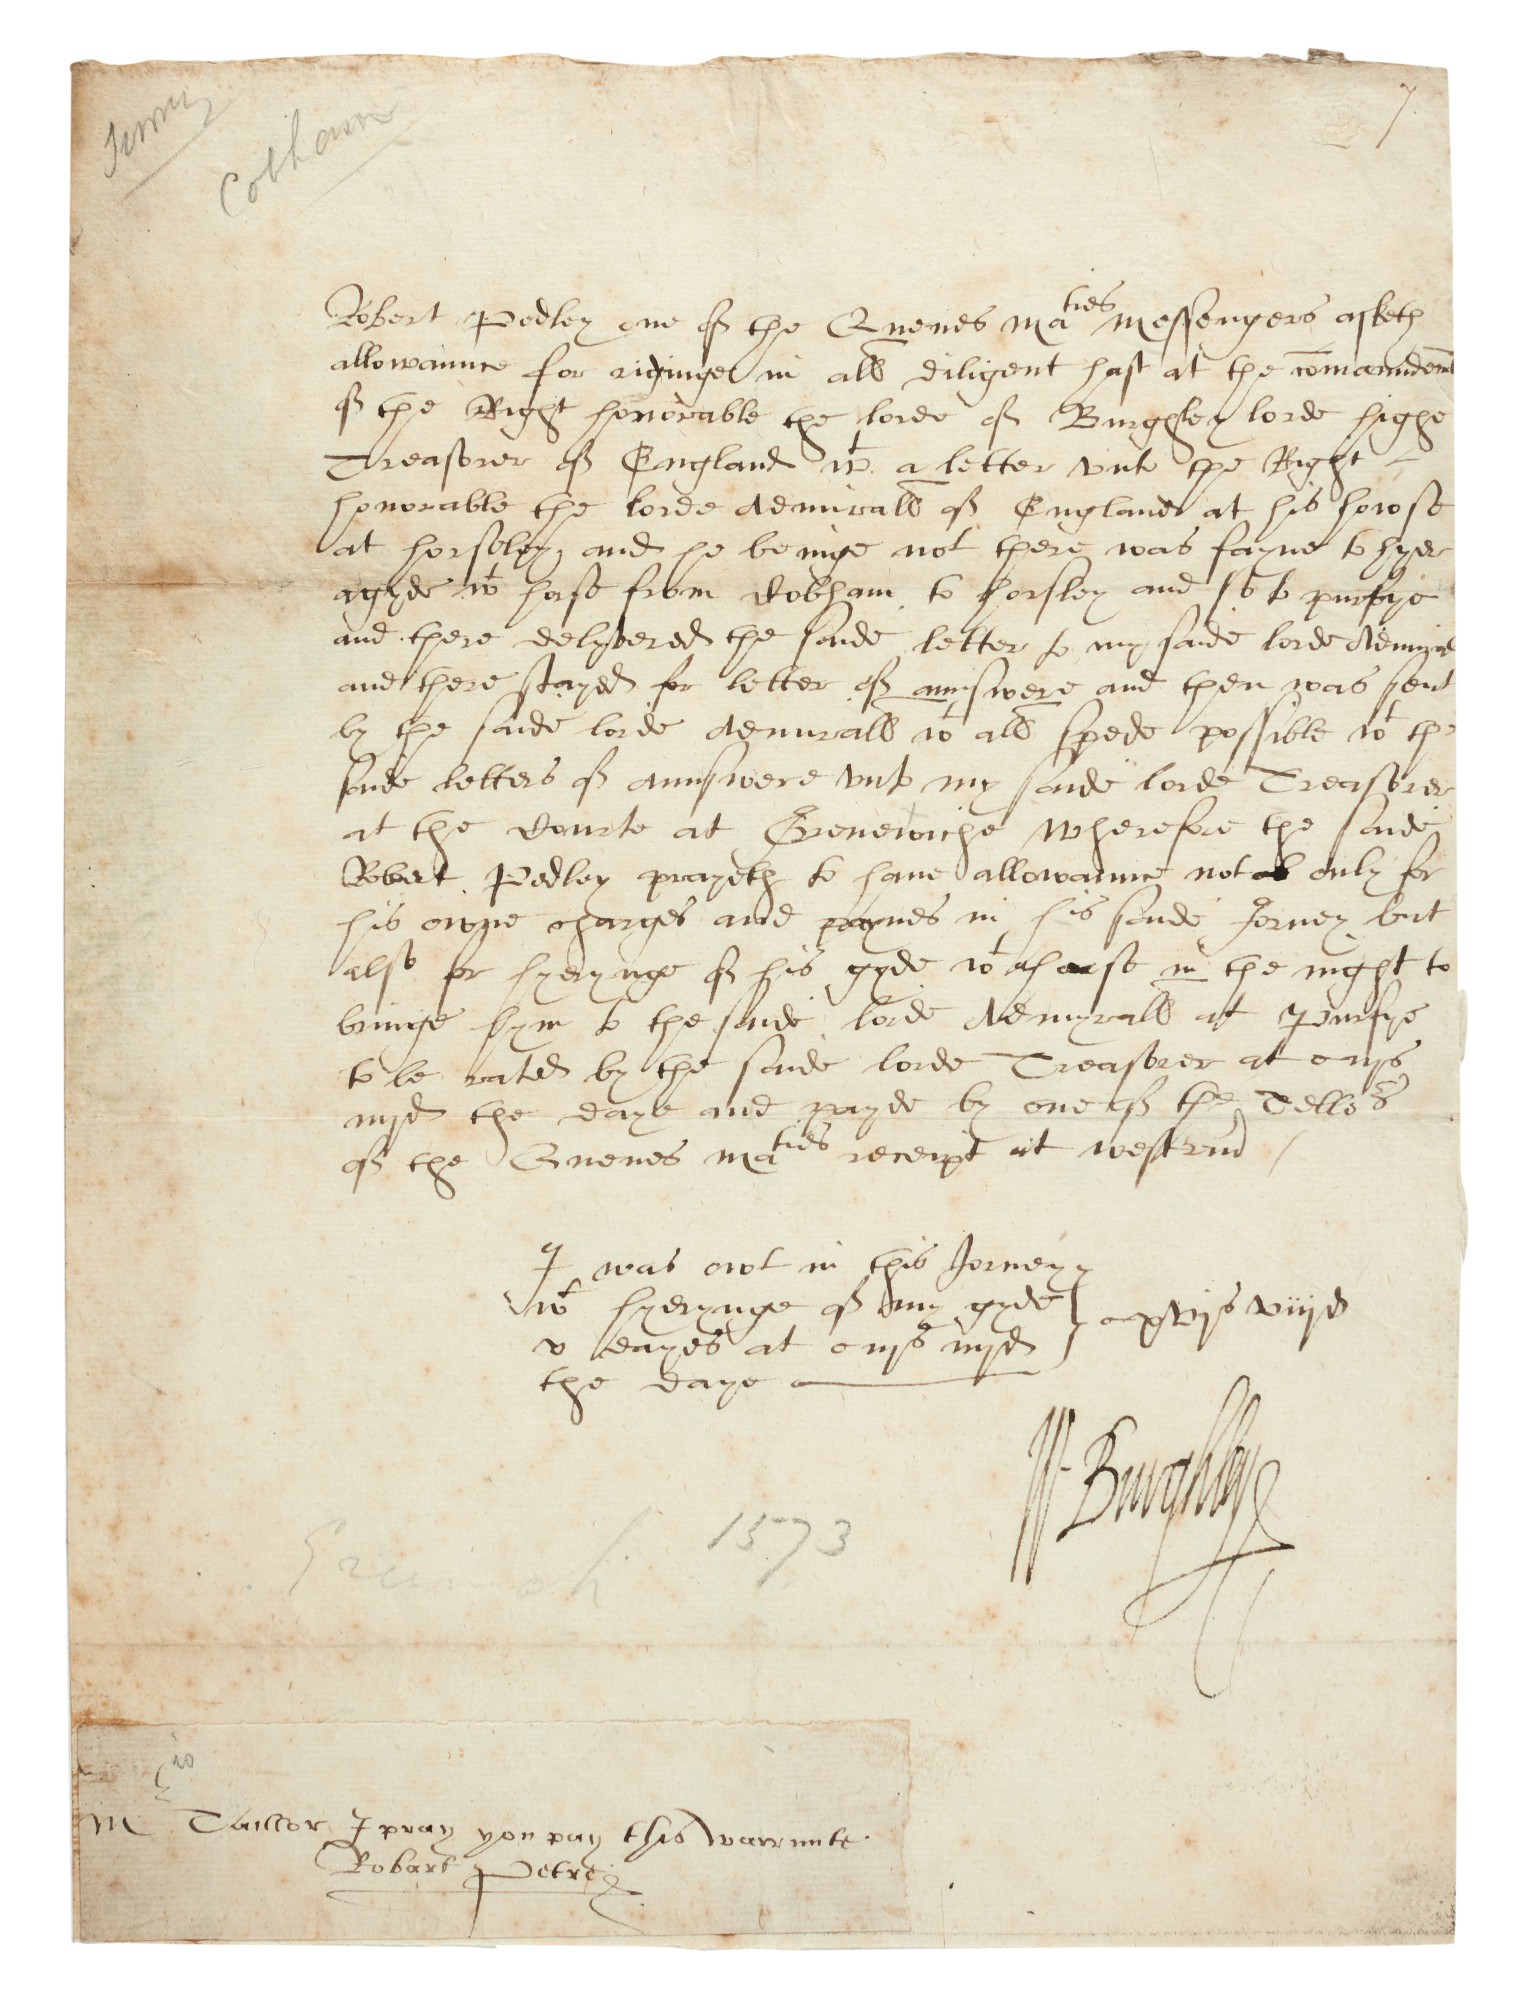 Cobham
7
Robert Pedley one of the Quenes Maties Messengers asketh
allowaunce for ridinge in all diligent hast at the comaundemt
of the Right honorable the lorde of Burghley lorde highe
Treasorer of England wt a letter vnto the Right
honorable the lorde Admirall of England at his howse
at horseley, and he beinge not there was fayne to hyer
a gyde wt horse from Cobham to horsley and so to purfrye
and there delyvered the saide letter to my saide lorde Admirall
and there stayed for letter of aunswere and then was sent
by the saide lorde Admirall wt all spede possible wt the
saide letters of aunswere vnto my saide lorde Treasorer
at the Courte at Grenewiche Wherefore the saide
Robert Pedley prayeth to haue allowaunce not only for
his owne charges and paynes in his saide Jorney but
also for hyerynge of his gyde wt horse in the night to
bringe hym to the saide lorde Admyrall at Purfrye
to be rated by the saide lorde Treasorer at iijs
iiijd the daye and payde by one of the Tellors
of the Quenes Maties receipt at westm
I was owt in this Jorney
wt hyerynge of my gyde
v dayes at iijs iiijd
the daye
xvjs viijd
W Burghley
1573
Mr Taillor I pray you pay this warrunte
Robart Petre